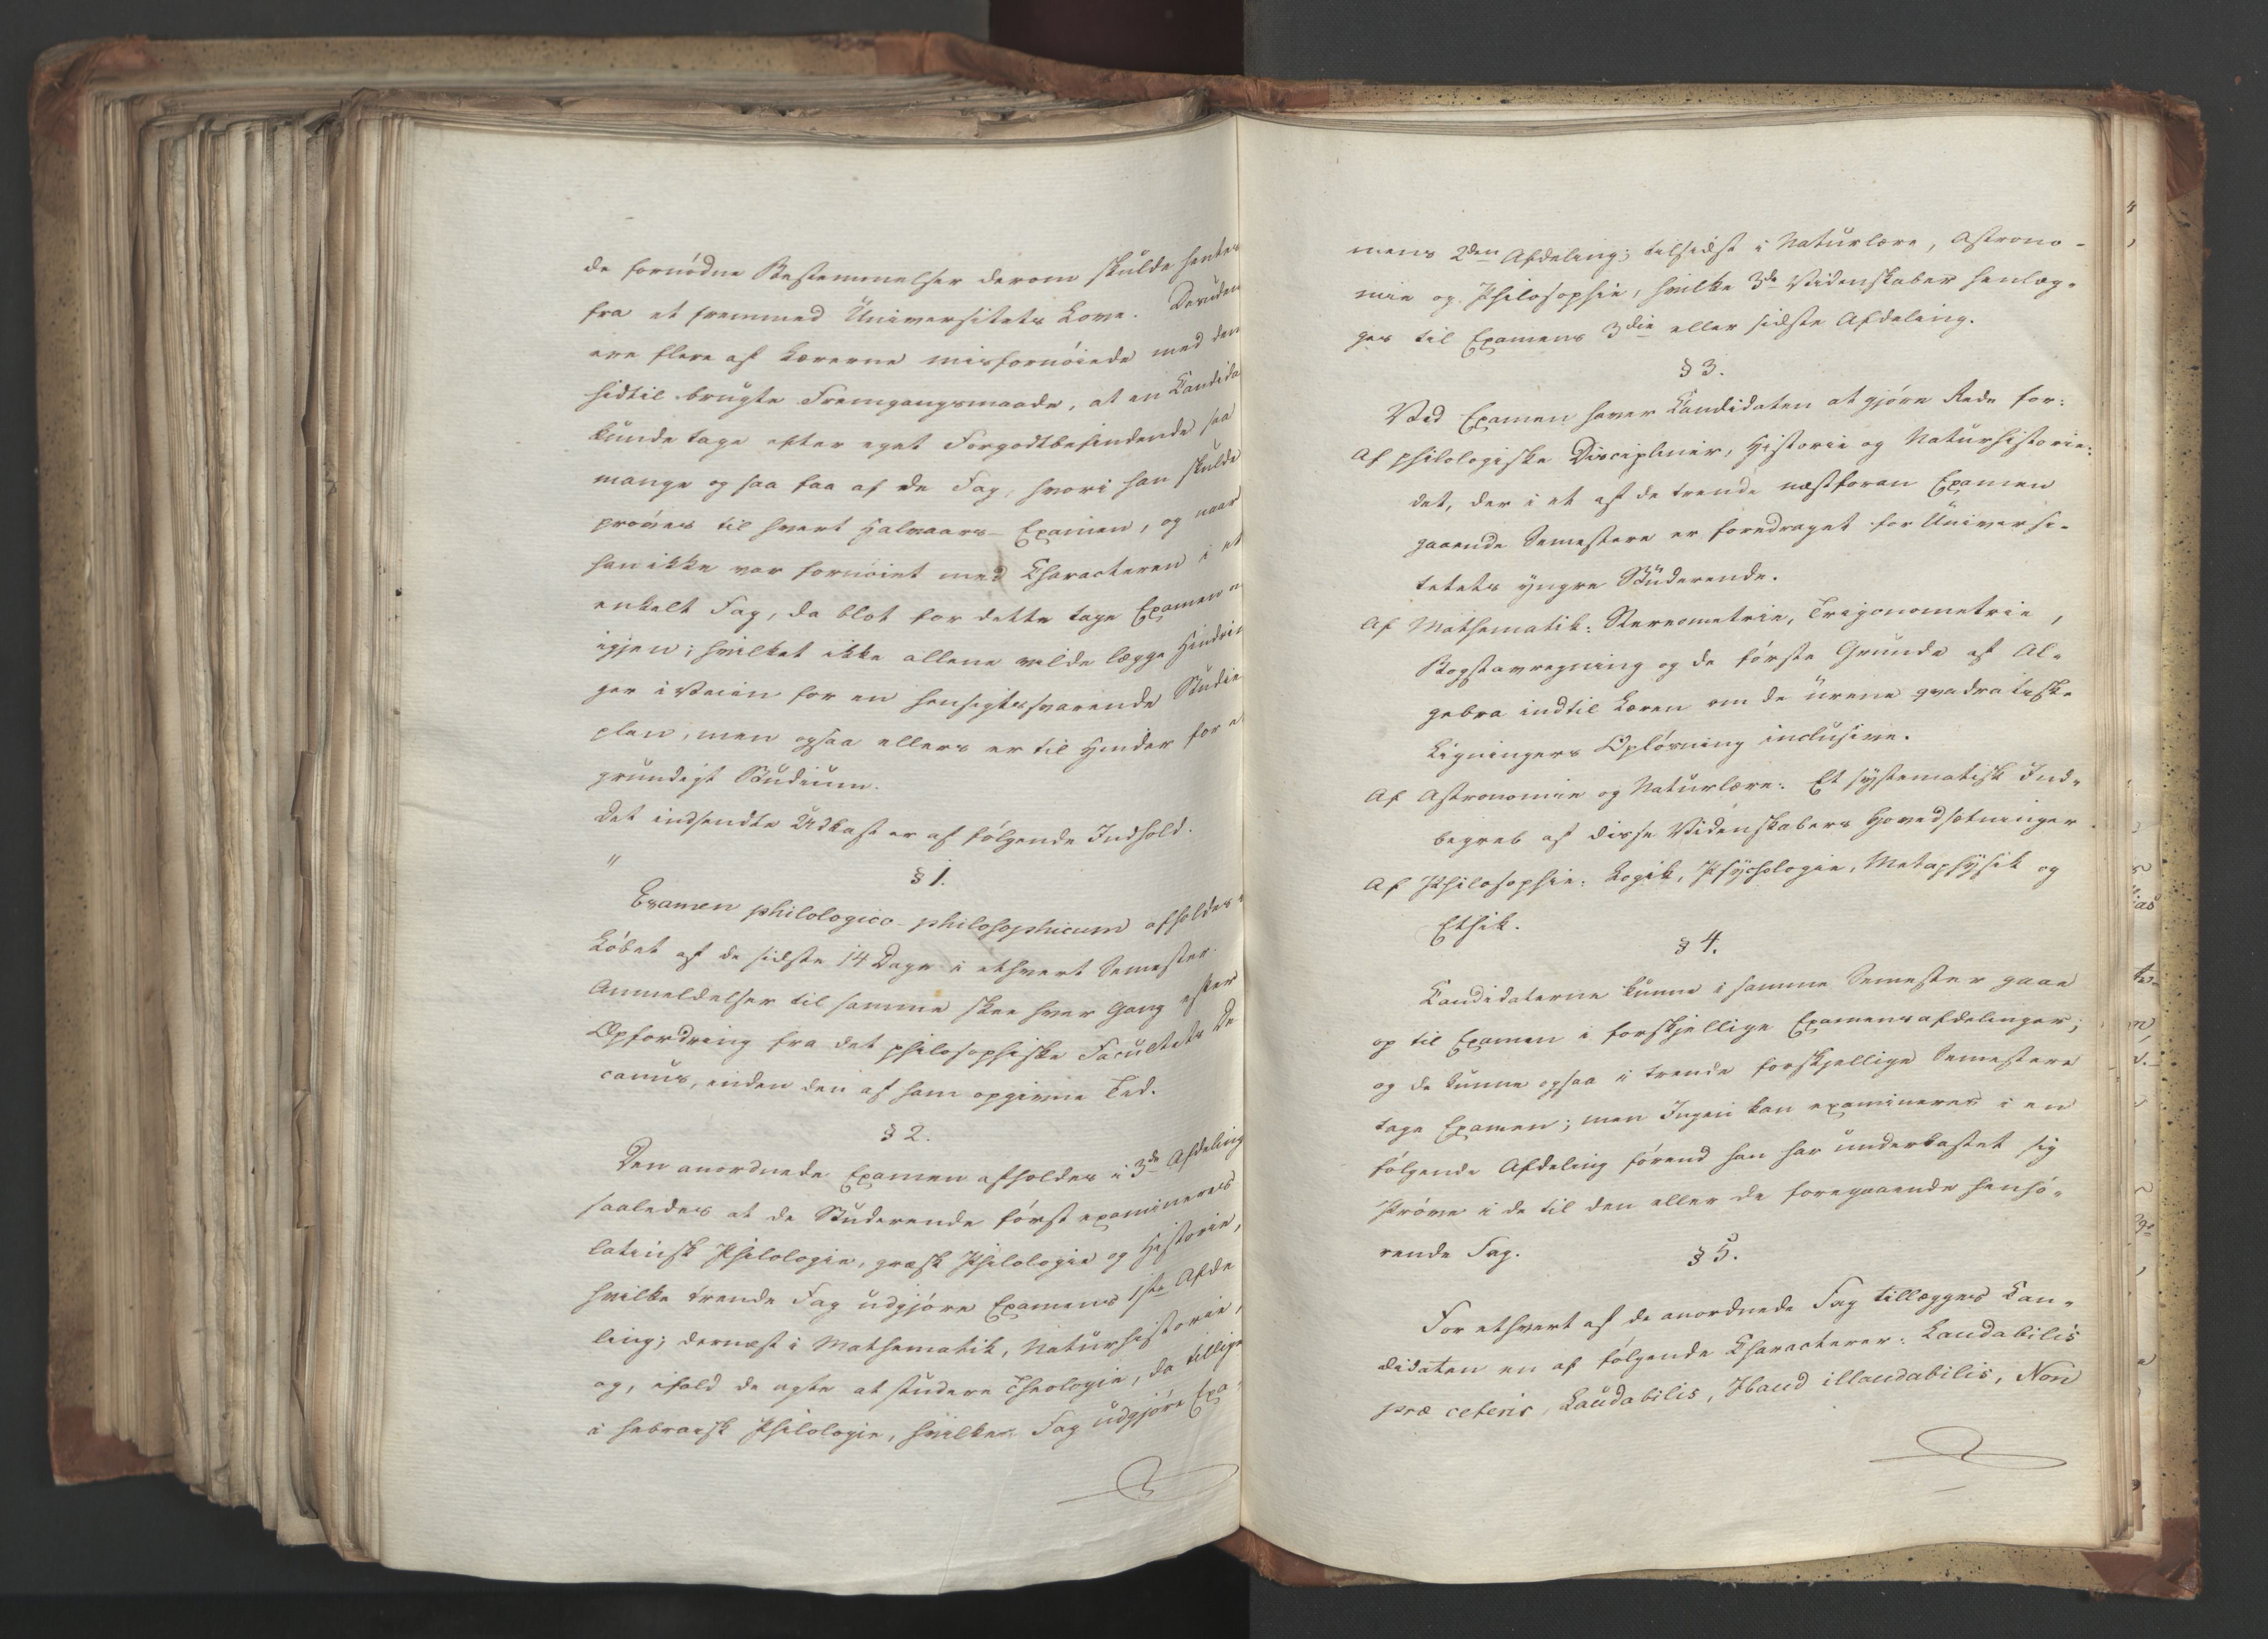 de fornødne Bestemmelser derom skulde hentes
fra et fremmed Universitets Love. Desuden
ere flere af Lærerne misfornøiede med den
hidtil brugte Fremgangsmaade, at en Candida
kunde tage efter eget Forgodtbefindende saa
mange og saa faa af de Fag, hvori han skulde
prøves til hvert Halvaars-Examen, og naar
han ikke var fornøiet med Characteren i et
enkelt Fag, da blot for dette tage Examen
igjen; hvilket ikke allene vilde lægge Hindrin
ger i Veien for en hensigtssvarende Studie
plan, men ogsaa ellers er til Hinder for e
grundigt Studium.
Det indsendte Udkast er af følgende Indhold.
"
§ 1.
Examen philologico-philosophicum afholdes i
Løbet af de sidste 14 Dage i ethvert Semester.
Anmeldelser til samme skee hver Gang efter
Opfordring fra det philosophiske Facultets De
canus, inden den af ham opgivne Tid.
§ 2.
Den anordnede Examen afholdes i 3de Afdeling
saaledes at de Studerende først examineres
latinsk Philologie, græsk Philologie og Historie,
hvilke trende Fag udgjøre Examens 1ste Afde
ling; dernæst i Mathematik, Naturhistorie,
og, ifald de agte at studere Theologie, da tillige
i hebraisk Philologie, hvilke Fag udgjøre Exa-
mens 2den Afdeling; tilsidst i Naturlære, Astrono-
mie og Philosophie, hvilke 3de Videnskaber henlæg-
ges til Examens 3die eller sidste Afdeling.
§ 3.
Ved Examen haver Candidaten at gjøre Rede for:
Af philologiske Discipliner, Historie og Naturhistorie:
det, der i et af de trende næstforan Examen
gaaende Semestere er foredraget for Universi-
tetets yngre Studerende.
Af Mathematik: Stereometrie, Trigonometrie,
Bogstavregning og de første Grunde af Al-
gebra indtil Læren om de urene qvadratiske
Ligningers Opløsning inclusive.
Af Astronomie og Naturlære: Et systematisk Ind-
begreb af disse Videnskabers Hovedsætninger.
Af Philosophie: Logik, Psychologie, Metaphysik og
Ethik.
§ 4.
Candidaterne kunne i samme Semester gaae
op til Examen i forskjellige Examensafdelinger;
og de kunne ogsaa i trende forskjellige Semestere
tage Examen; men Ingen kan examineres i en
følgende Afdeling førend han har underkastet sig
Prøve i de til den eller de foregaaende henhø-
rende Fag.
§ 5.
For ethvert af de anordnede Fag tillægges Can-
didaten en af følgende Characterer: Laudabilis
præ ceteris, Laudabilis, Haud illaudabilis, Non